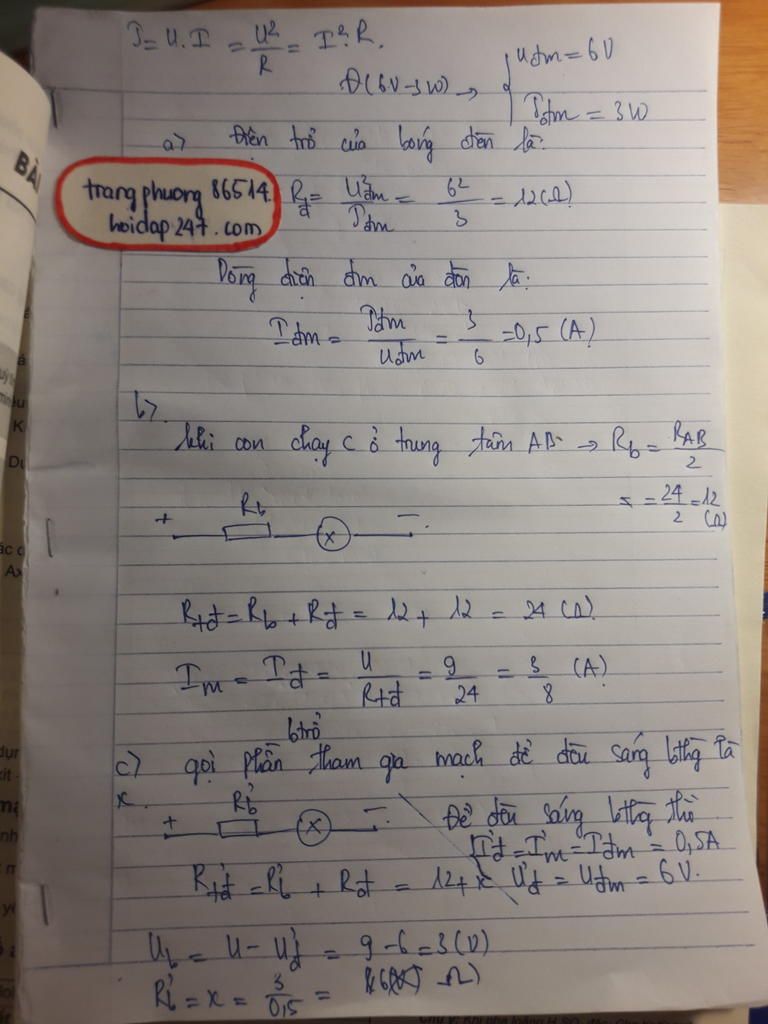 P = U.I = U²/R = I².R.
Đ(6V-3W) → { Uđm = 6V
Pđm = 3W
a> Điện trở của bóng đèn là:
BÀ
trangphuong 86514.
hoidap247.com
Rđ = U²đm/Pđm = 6²/3 = 12(Ω)
Dòng điện đm của đèn là:
Iđm = Pđm/Uđm = 3/6 = 0,5 (A)
b>
khi con chạy C ở trung tâm AB → Rb = RAB/2
= 24/2 = 12 (Ω)
+ Rb x -
Rtđ = Rb + Rđ = 12 + 12 = 24 (Ω)
Im = Iđ = U/Rtđ = 9/24 = 3/8 (A)
btrở
c> gọi phần tham gia mạch để đèn sáng bthg là
x.
+ Rb' x -
Để đèn sáng bthg thì
I'đ = I'm = Iđm = 0,5A
R'tđ = R'b + Rđ = 12 + x U'đ = Uđm = 6V.
Ub = U - U'đ = 9 - 6 = 3 (V)
R'b = x = 3/0,5 = 6 (Ω)